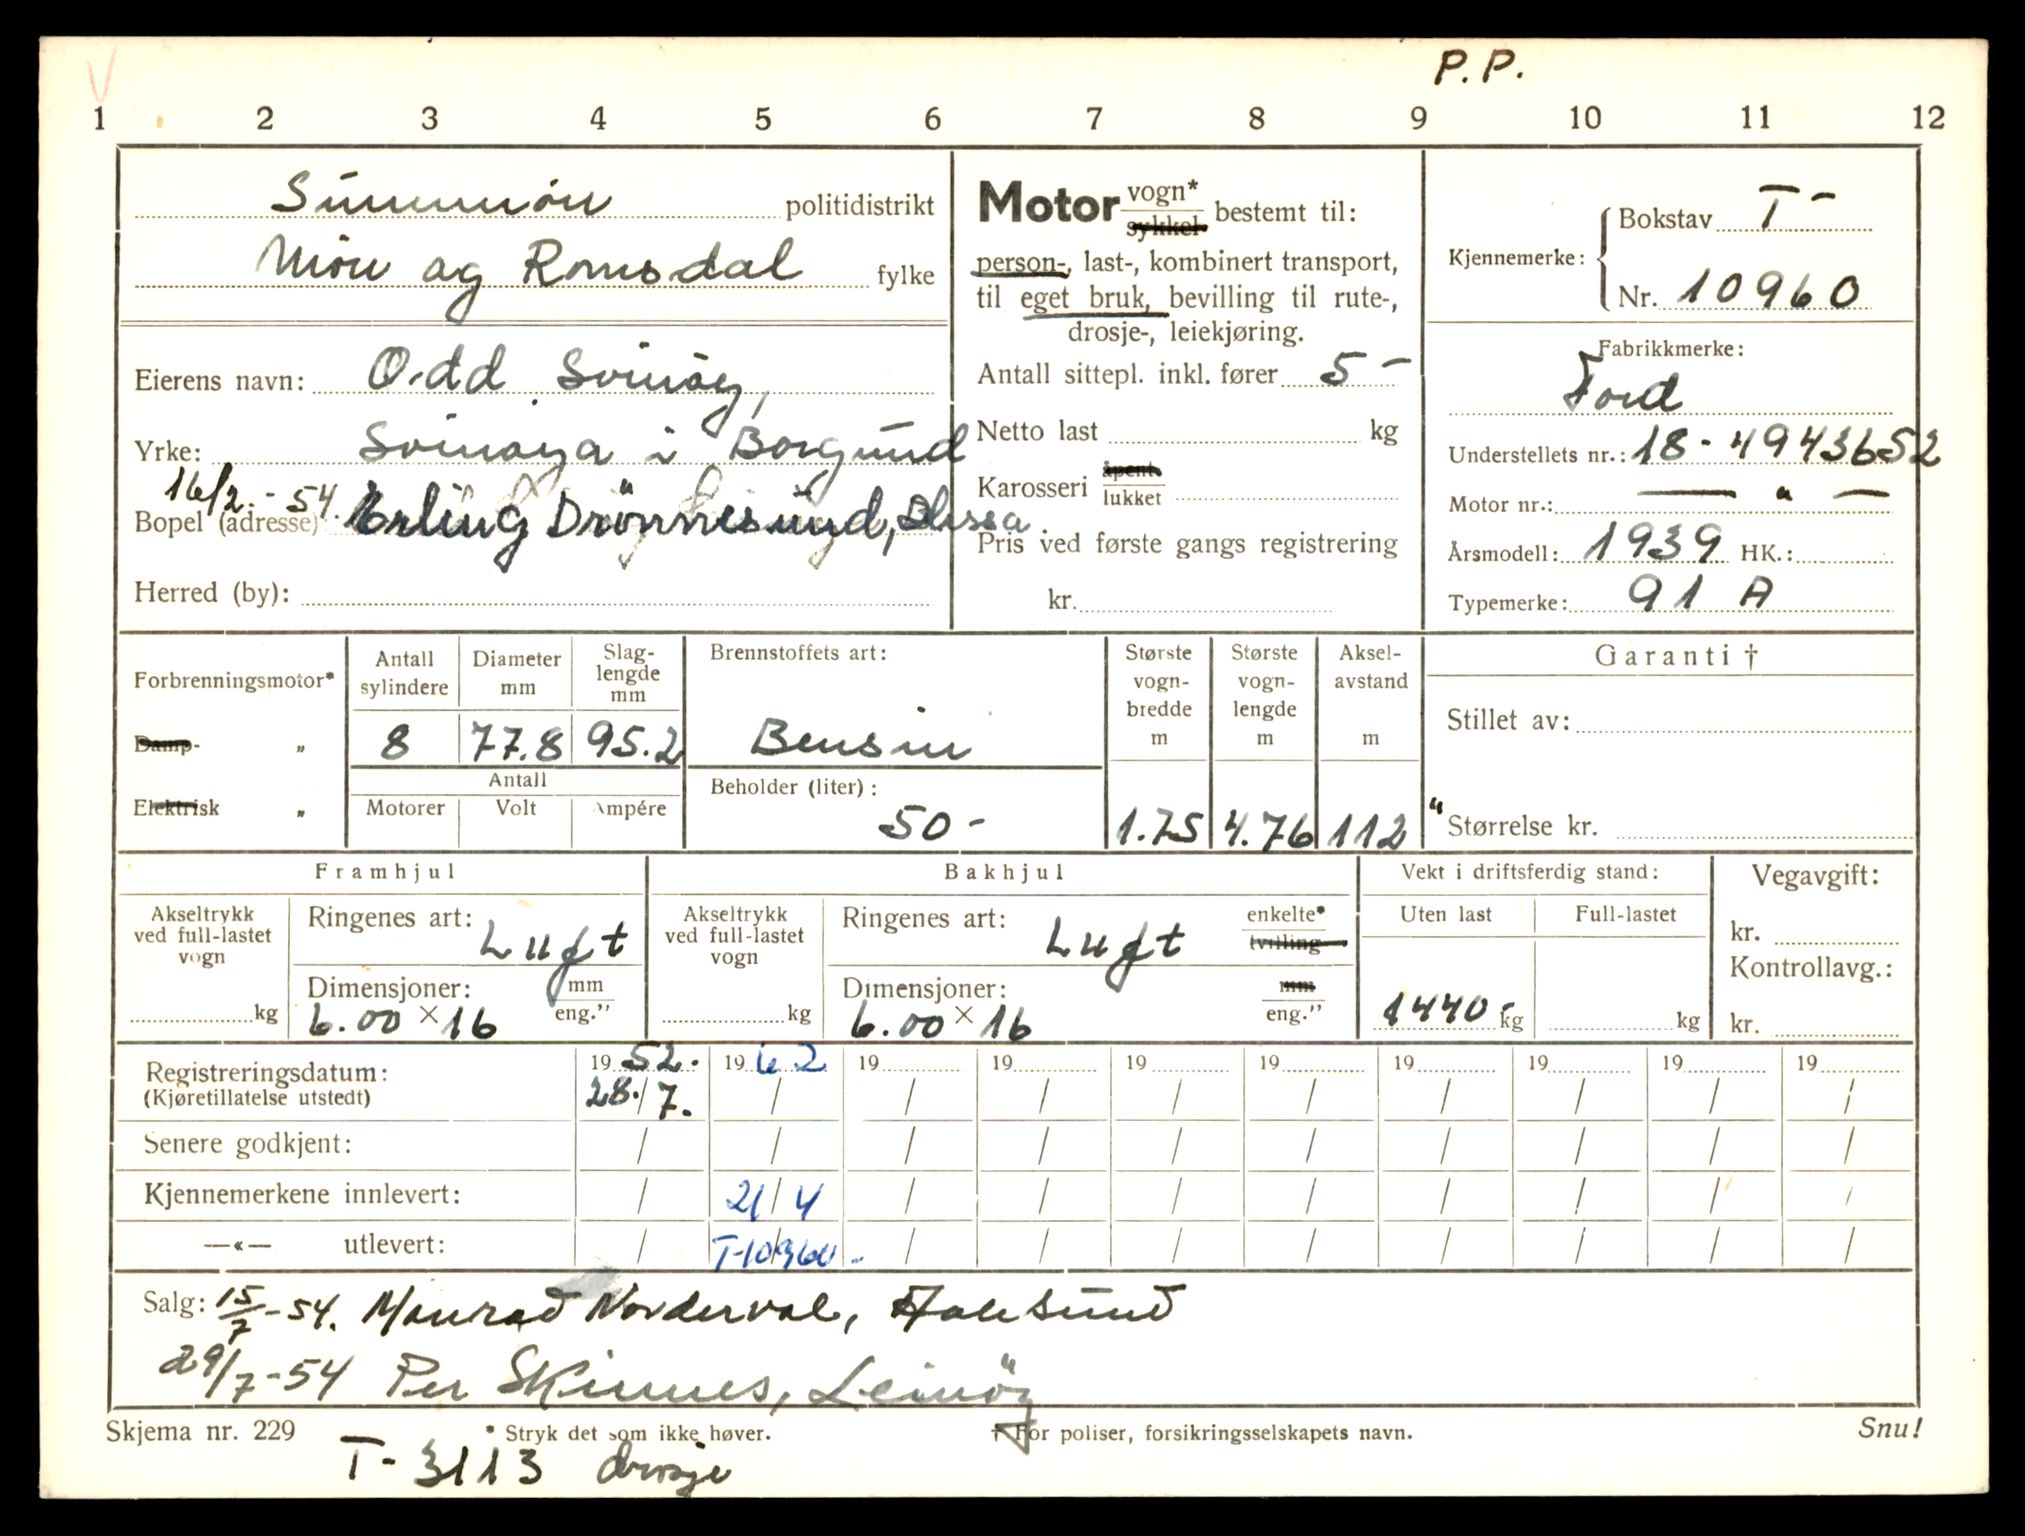 P. P.
1 2 3 4 5 6 7 8 9 10 11 12
Sunnmöre politidistrikt
Möre og Romsdal fylke
Eierens navn: Odd Svinöy,
Yrke: Svinöya i Borgund
16/2 - 54.
Bopel (adresse) Erling Drönnesund,
Herred (by):
Motor vogn* sykkel bestemt til:
person-, last-, kombinert transport,
til eget bruk, bevilling til rute-,
drosje-, leiekjøring.
Antall sittepl. inkl. fører 5 -
Netto last kg
Karosseri åpent lukket
Pris ved første gangs registrering
kr.
Kjennemerke: Bokstav T-
Nr. 10960
Fabrikkmerke:
Ford
Understellets nr.: 18-4943652
Motor nr.: — " —
Årsmodell: 1939 HK.:
Typemerke: 91 A
Forbrenningsmotor*
Damp- „
Elektrisk „
Antall sylindere 8
Diameter mm 77.8
Slag-lengde mm 95.2
Antall
Motorer Volt Ampére
Brennstoffets art:
Bensin
Beholder (liter):
50 -
Største vogn-bredde m 1.75
Største vogn-lengde m 4.76
Aksel-avstand m 112"
Garanti †
Stillet av:
Størrelse kr.
Framhjul
Akseltrykk ved full-lastet vogn
kg
Ringenes art: Luft
Dimensjoner: mm eng.”
6.00 × 16
Bakhjul
Akseltrykk ved full-lastet vogn
kg
Ringenes art: Luft enkelte* tvilling
Dimensjoner: mm eng.”
6.00 × 16
Vekt i driftsferdig stand:
Uten last Full-lastet
1440- kg kg
Vegavgift:
kr.
Kontrollavg.:
kr.
Registreringsdatum: 19 52. 19 62 19 19 19 19 19 19 19 19
(Kjøretillatelse utstedt) 28./7. / / / / / / / / /
Senere godkjent: / / / / / / / / / /
Kjennemerkene innlevert: / 21/4 / / / / / / / /
—«— utlevert: / T-10360- / / / / / / / /
Salg: 15/7-54. Monrad Norderval, Aalesund
29/7-54 Per Skinnes, Leinöy
Skjema nr. 229 * Stryk det som ikke høver. † For poliser, forsikringsselskapets navn. Snu!
T-3113 drosje